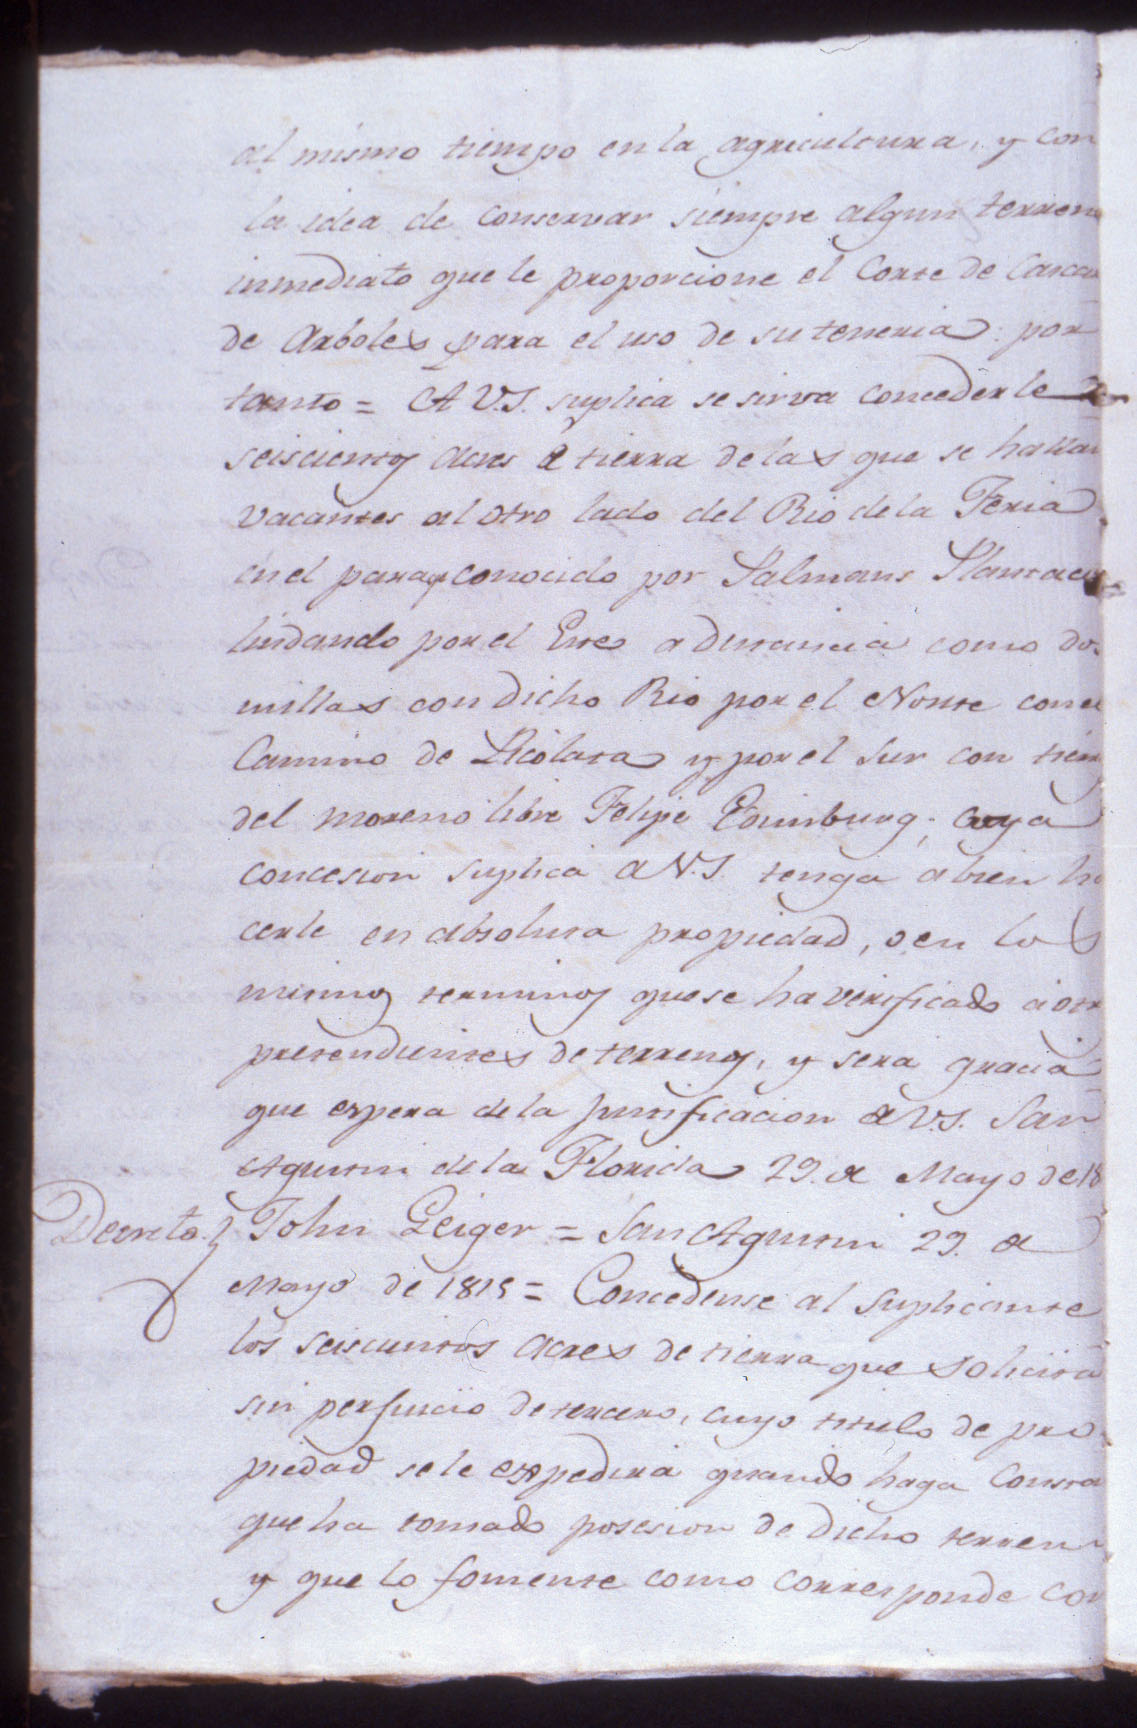 al mismo tiempo en la agricultura, y con
la idea de conservar siempre algun terren
inmediato que le proporcione el Corte de Cascar
de Arboles para el uso de su teneria: por
tanto = A V.S. suplica se sirva concederle
seiscientos acres de tierra de las que se hallan
vacantes al otro lado del Rio de la Feria
en el parage conocido por Salmans Plantac
lindando por el Este a distancia como do
millas con dicho Rio por el Norte con el
Camino de Picolata y por el Sur con tierr
del moreno libre Felipe Edimburg; cuya
concesion suplica a V.S. tenga a bien ha
cerle en absoluta propiedad, o en los
mismos terminos que se ha verificado a otr
pretendientes de terrenos, y sera gracia
que espera de la justificacion de V.S. San
Agustin de la Florida 29. de Mayo de 18
Decreto. John Geiger = San Agustin 29. de
Mayo de 1815 = Concedense al Suplicante
los seiscientos acres de tierra que solicita
sin perjuicio de tercero, cuyo titulo de pro
piedad se le expedira quando haga Consta
que ha tomado posesion de dicho terren
y que lo fomente como corresponde con